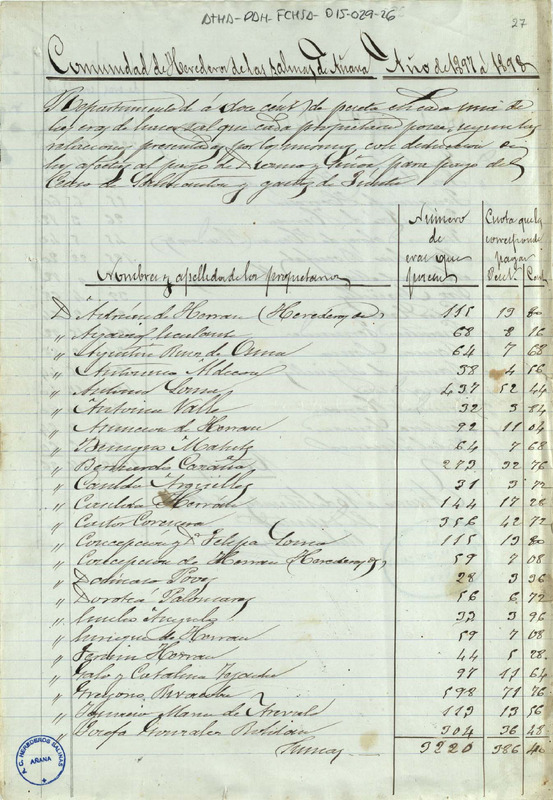 ATHA-DAH-FCHSA-D15-029-26
27
Comunidad de Herederos de las Salinas de Añana Año de 1897 á 1898
Repartimiento de á doce cént.s de peseta en cada una de
las eras de hacer sal que cada propietario posee, segun las
relaciones presentadas por los mismos, con deducción de
las afectas al pago de y para pago del
Censo de y gastos de
Nombres y apellidos de los propietarios
Número de eras que poseen
Cuota que les corresponde pagar
Peset.s Cent.s
D. Adrián de Herran (Herederos de) 115 13 80
" 68 8 16
" Agustin Ruiz de Osma 64 7 68
" 38 4 56
" Antonio 437 52 44
" Antonio Valle 32 3 84
" Asuncion de Herran 92 11 04
" Benigna 64 7 68
" Bernardo 273 32 76
" Canuto Arguelles 31 3 72
" Casilda Herrán 144 17 28
" Castor Corcuera 356 42 72
" Concepcion y Felipa 115 13 80
" Concepcion de Herran (Herederos de) 59 7 08
" 28 3 36
" Dorotea Palomares 56 6 72
" Emilio Angulo 33 3 96
" Enrique de Herran 59 7 08
" Fermin Herran 44 5 28
" Galo y Catalina 97 11 64
" Gregorio 598 71 76
" Ignacio Maria de 113 13 56
" Josefa Gonzalez 304 36 48
Suma 3220 386 40
P. C. HEREDEROS SALINAS
AÑANA